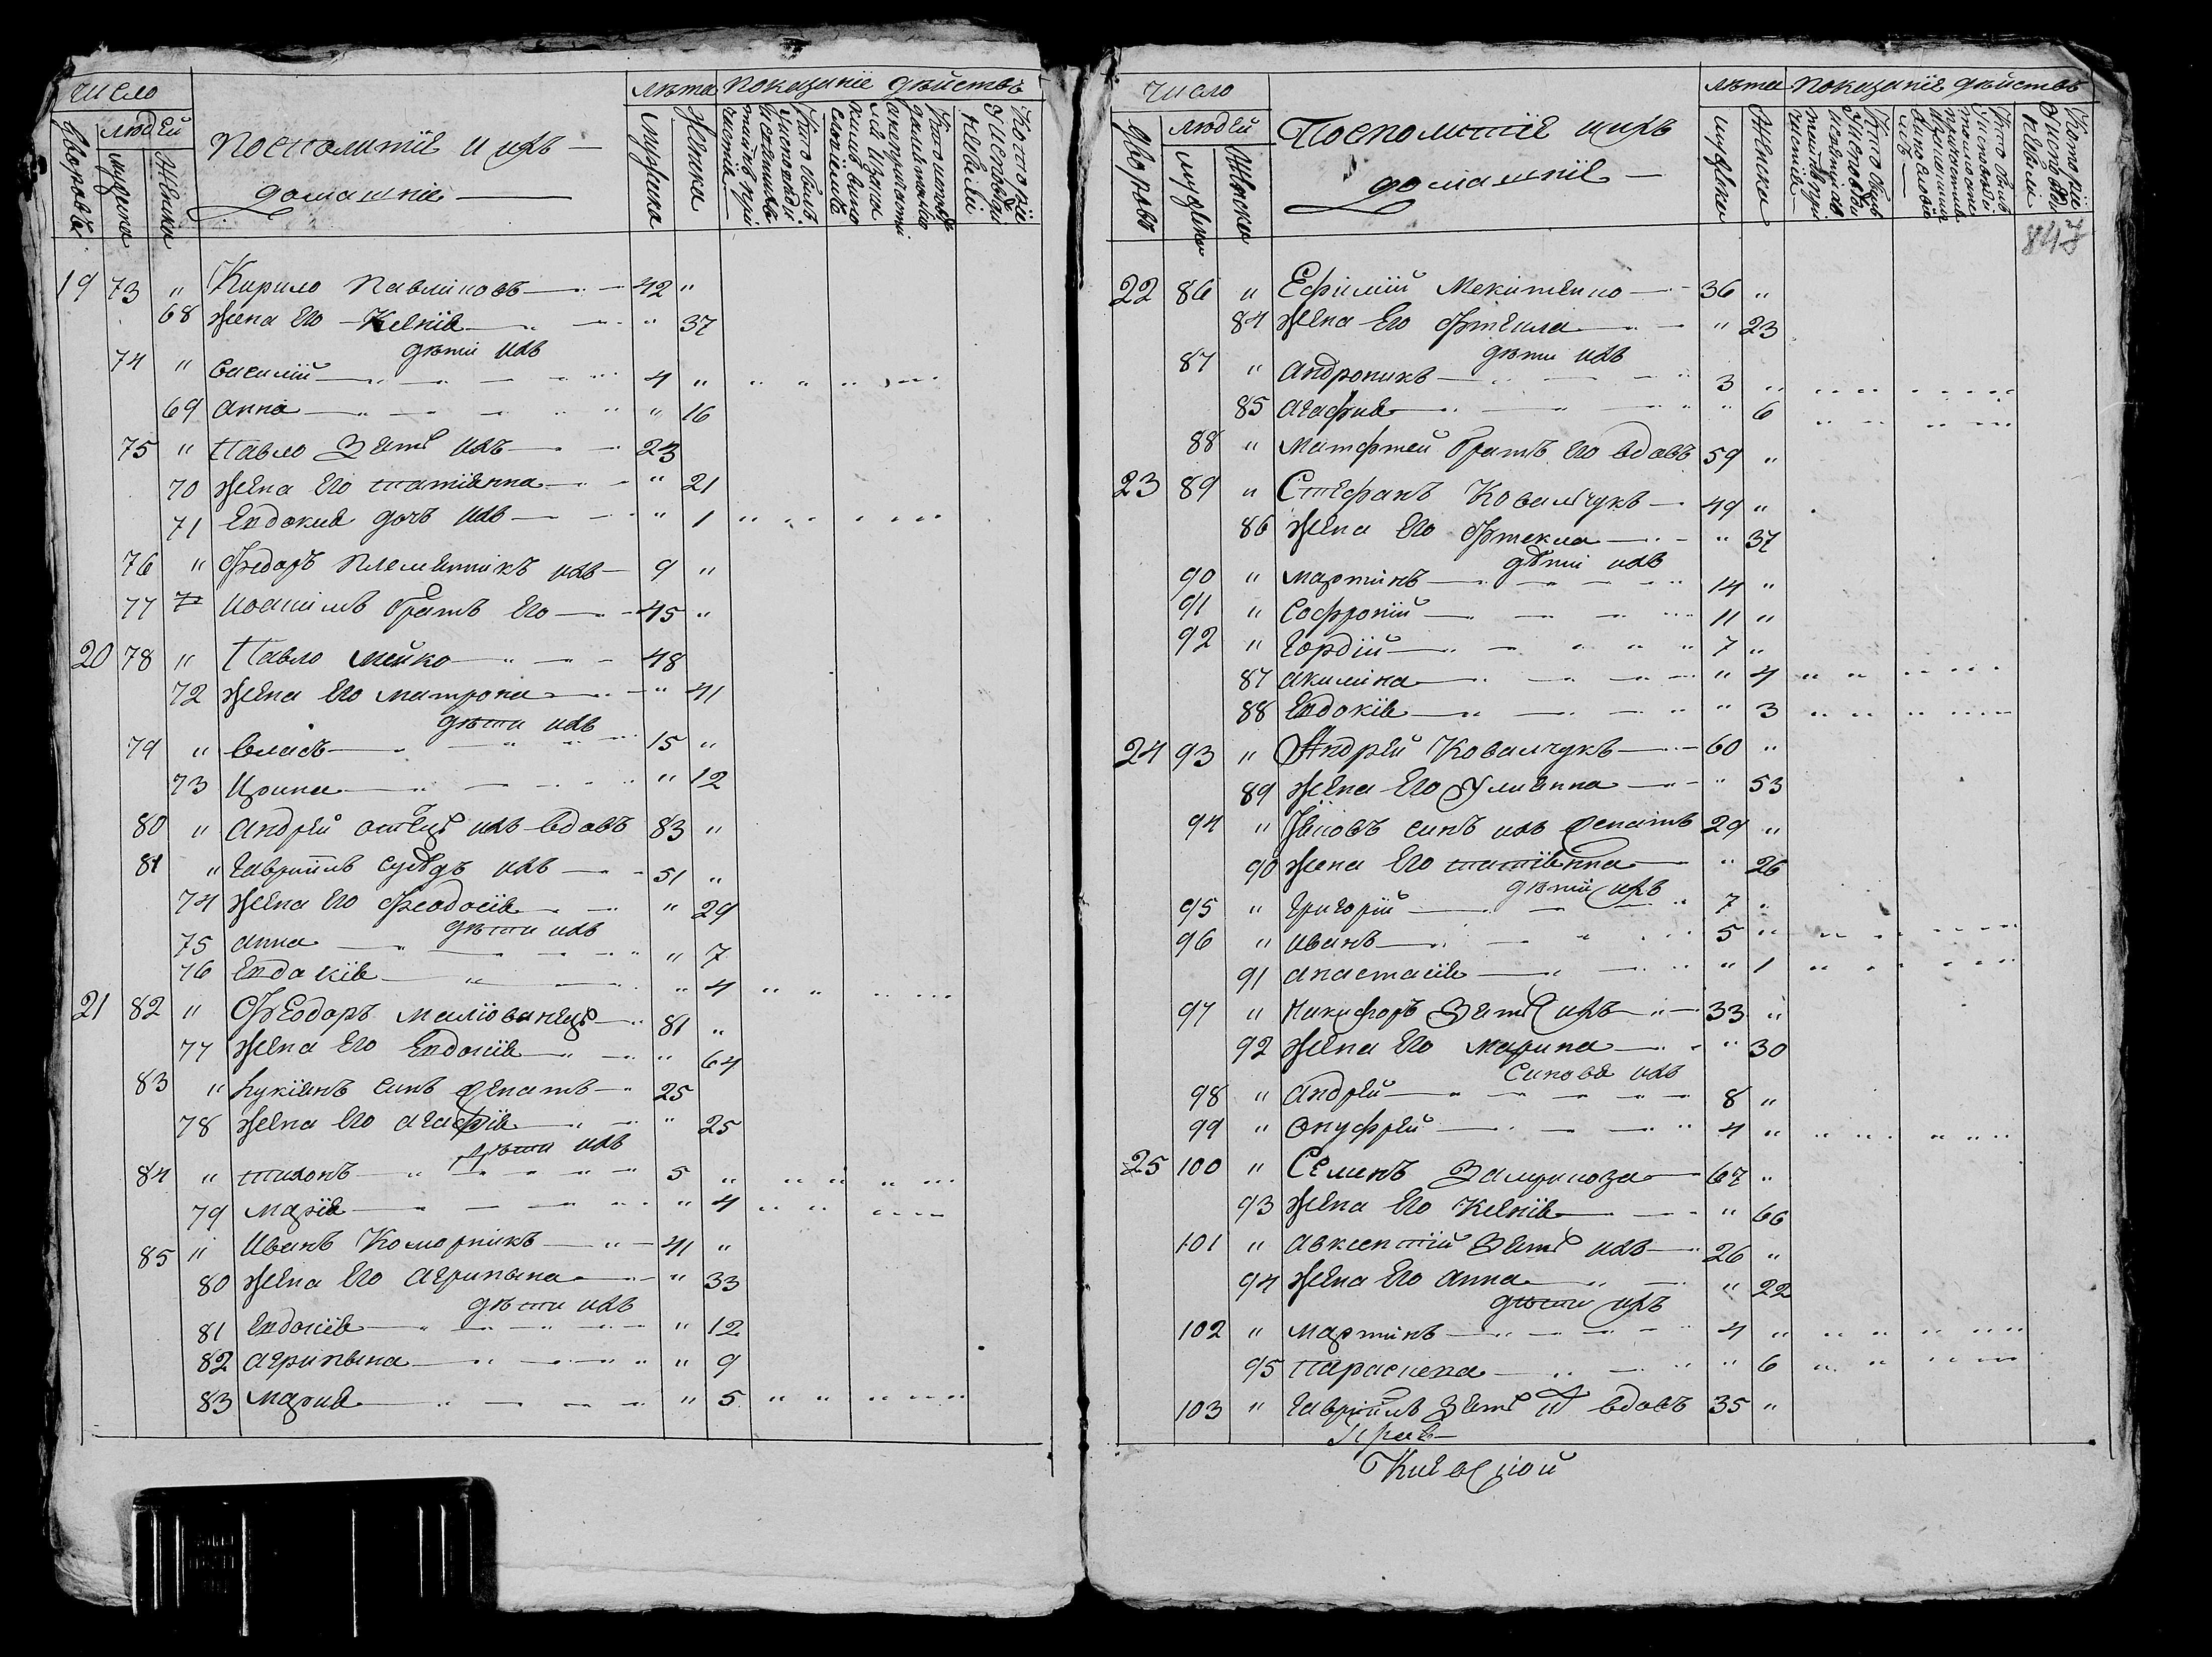 число
людей
дворовъ
мужска
женска
Посполитіе и ихъ
домашніе
лѣта
мужска
женска
Показаніе дѣйствъ
19 73 " Кирило Павликовъ 42 "
68 жена Его Ксенія " 37
дѣти ихъ
74 " Василій 4 "
69 Анна " 16
75 " Павло Зять ихъ 23
70 жена Его татіанна " 21
71 Евдокия дочь ихъ " 1
76 " Федоръ племянникъ ихъ 9 "
77 Иоакимъ братъ Его 45 "
20 78 " Павло Мейко 48
72 жена Его матрона " 41
дѣти ихъ
79 " Власъ 15 "
73 Ирина " 12
80 " Андрей отецъ ихъ вдовъ 83 "
81 " Гавріилъ сусѣдъ ихъ 51 "
74 жена Его Феодосія " 29
дѣти ихъ
75 Анна " 7
76 Евдокія " 4
21 82 " Феодоръ Маліованецъ 81 "
77 жена Его Евдокія " 64
83 " Лукіянъ синъ женатъ 25
78 жена Его Агафія " 25
дѣти ихъ
84 " тихонъ 5 "
79 Марія " 4
85 " Иванъ Коморникъ 41 "
80 жена Его Агрипына " 33
дѣти ихъ
81 Евдокія " 12
82 Агрипына " 9
83 Мария " 5
Число
людей
дворовъ
мужска
женска
Посполитіе ихъ
домашніе
лѣта
мужска
женска
Показаніе дѣйствъ
847
22 86 " Ефимій Мекитенко 36 "
84 жена Его Фтекла " 23
дѣти ихъ
87 " Андроникъ 3 "
85 Агафия " 6
88 " Матфтей братъ Его вдовъ 59 "
23 89 " Стефанъ Ковальчукъ 49 "
86 жена Его Фтекла " 37
дѣти ихъ
90 " Мартинъ 14 "
91 " Софроній 11 "
92 " Гордій 7 "
87 Акилина " 4
88 Евдокія " 3
24 93 " Андрей Ковалчукъ 60 "
89 жена Его Улиянна " 53
94 " Яковъ синъ ихъ женатъ 29 "
90 жена Его татіянна " 26
дѣти ихъ
95 " Григорій 7 "
96 " Иванъ 5 "
91 Анастасія " 1
97 " Никифоръ Зять ихъ 33 "
92 жена Его Марина " 30
Синовя ихъ
98 " Андрей 8 "
99 " Онуфрей 4 "
25 100 " Семенъ 67 "
93 жена Его Ксенія " 66
101 " Авксентій Зять ихъ 26 "
94 жена Его Анна " 22
дѣти ихъ
102 " Мартинъ 4 "
95 Параскева " 6
103 " Гавріилъ Зять вдовъ 35 "
Киевской